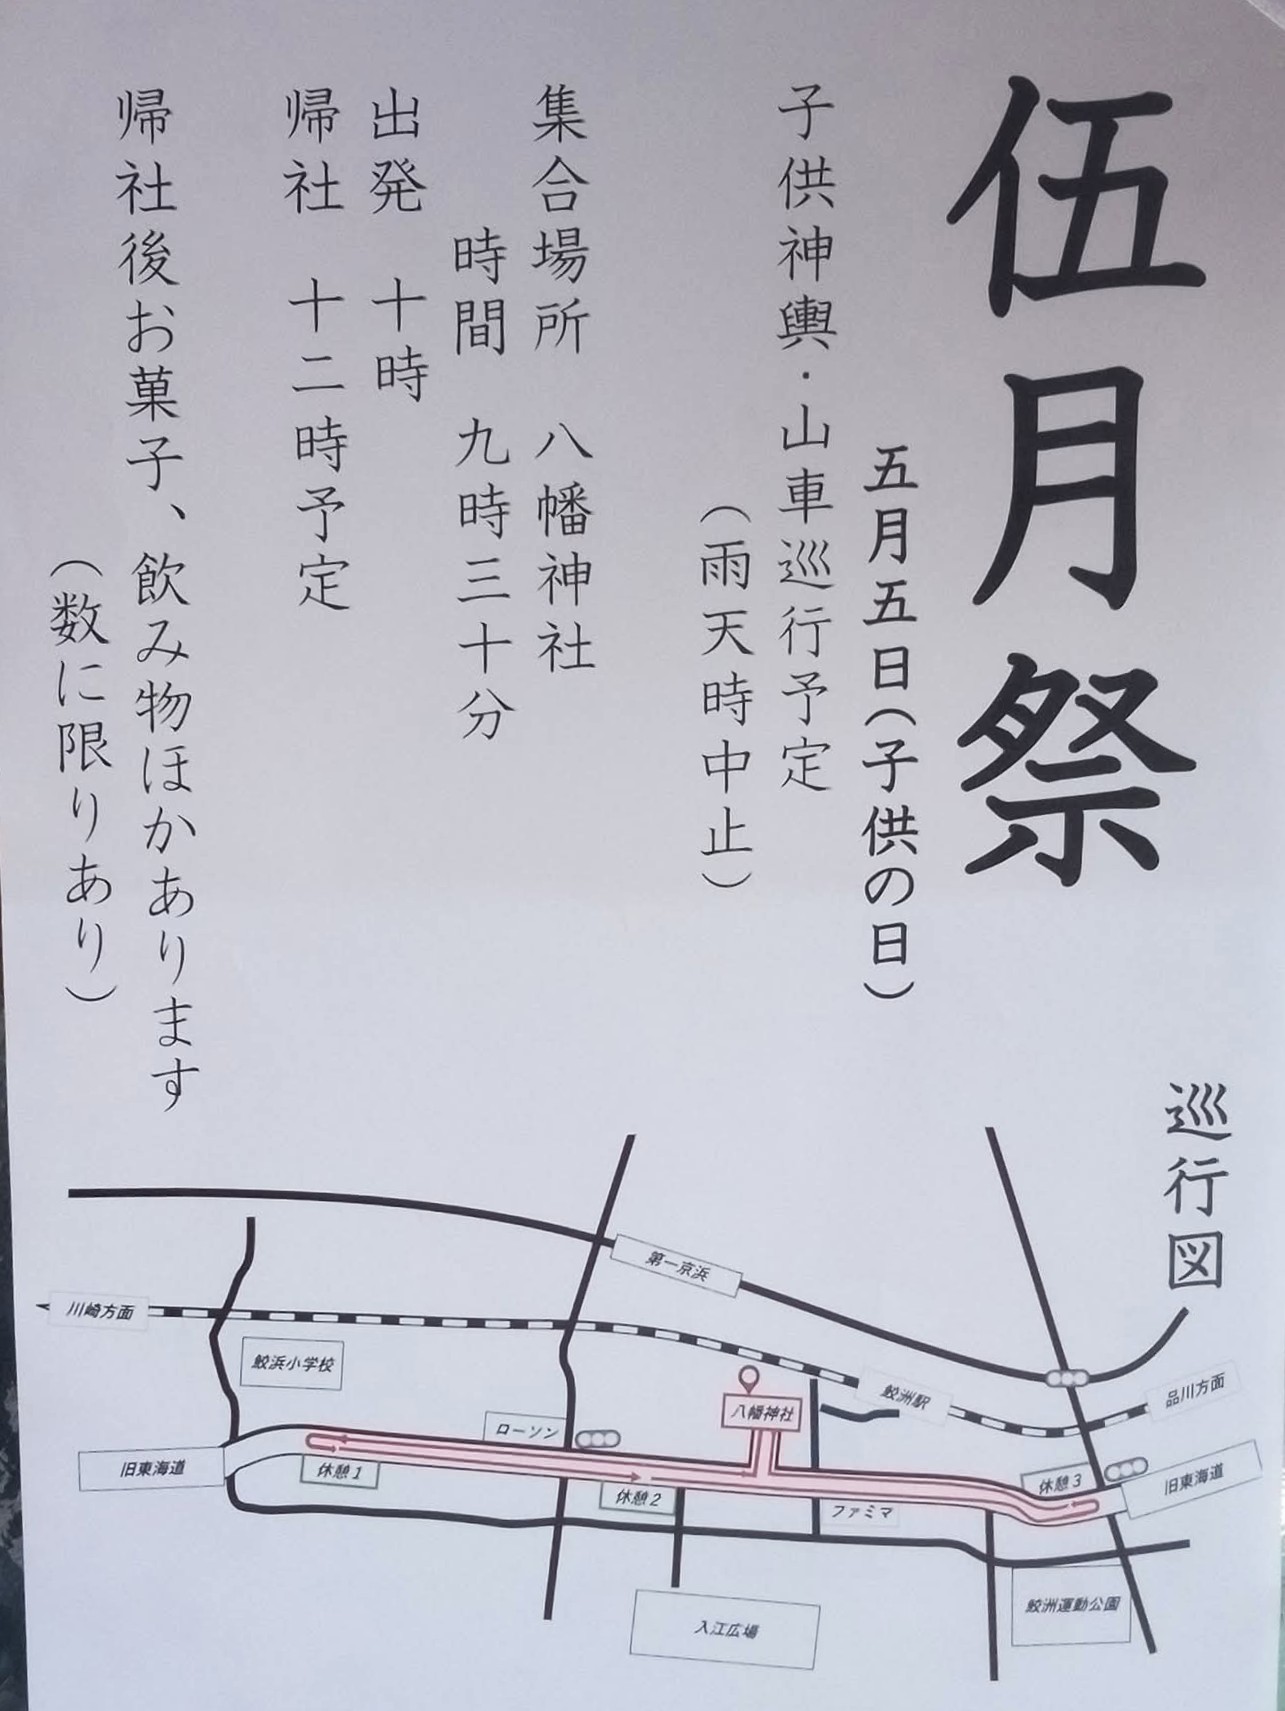 伍月祭
五月五日(子供の日)
子供神輿・山車巡行予定
(雨天時中止)
集合場所 八幡神社
時間 九時三十分
出発 十時
帰社 十二時予定
帰社後お菓子、飲み物ほかあります
(数に限りあり)
巡行図
第一京浜
川崎方面
鮫浜小学校
鮫洲駅
品川方面
八幡神社
ローソン
旧東海道
休憩1
休憩2
休憩3
旧東海道
ファミマ
入江広場
鮫洲運動公園